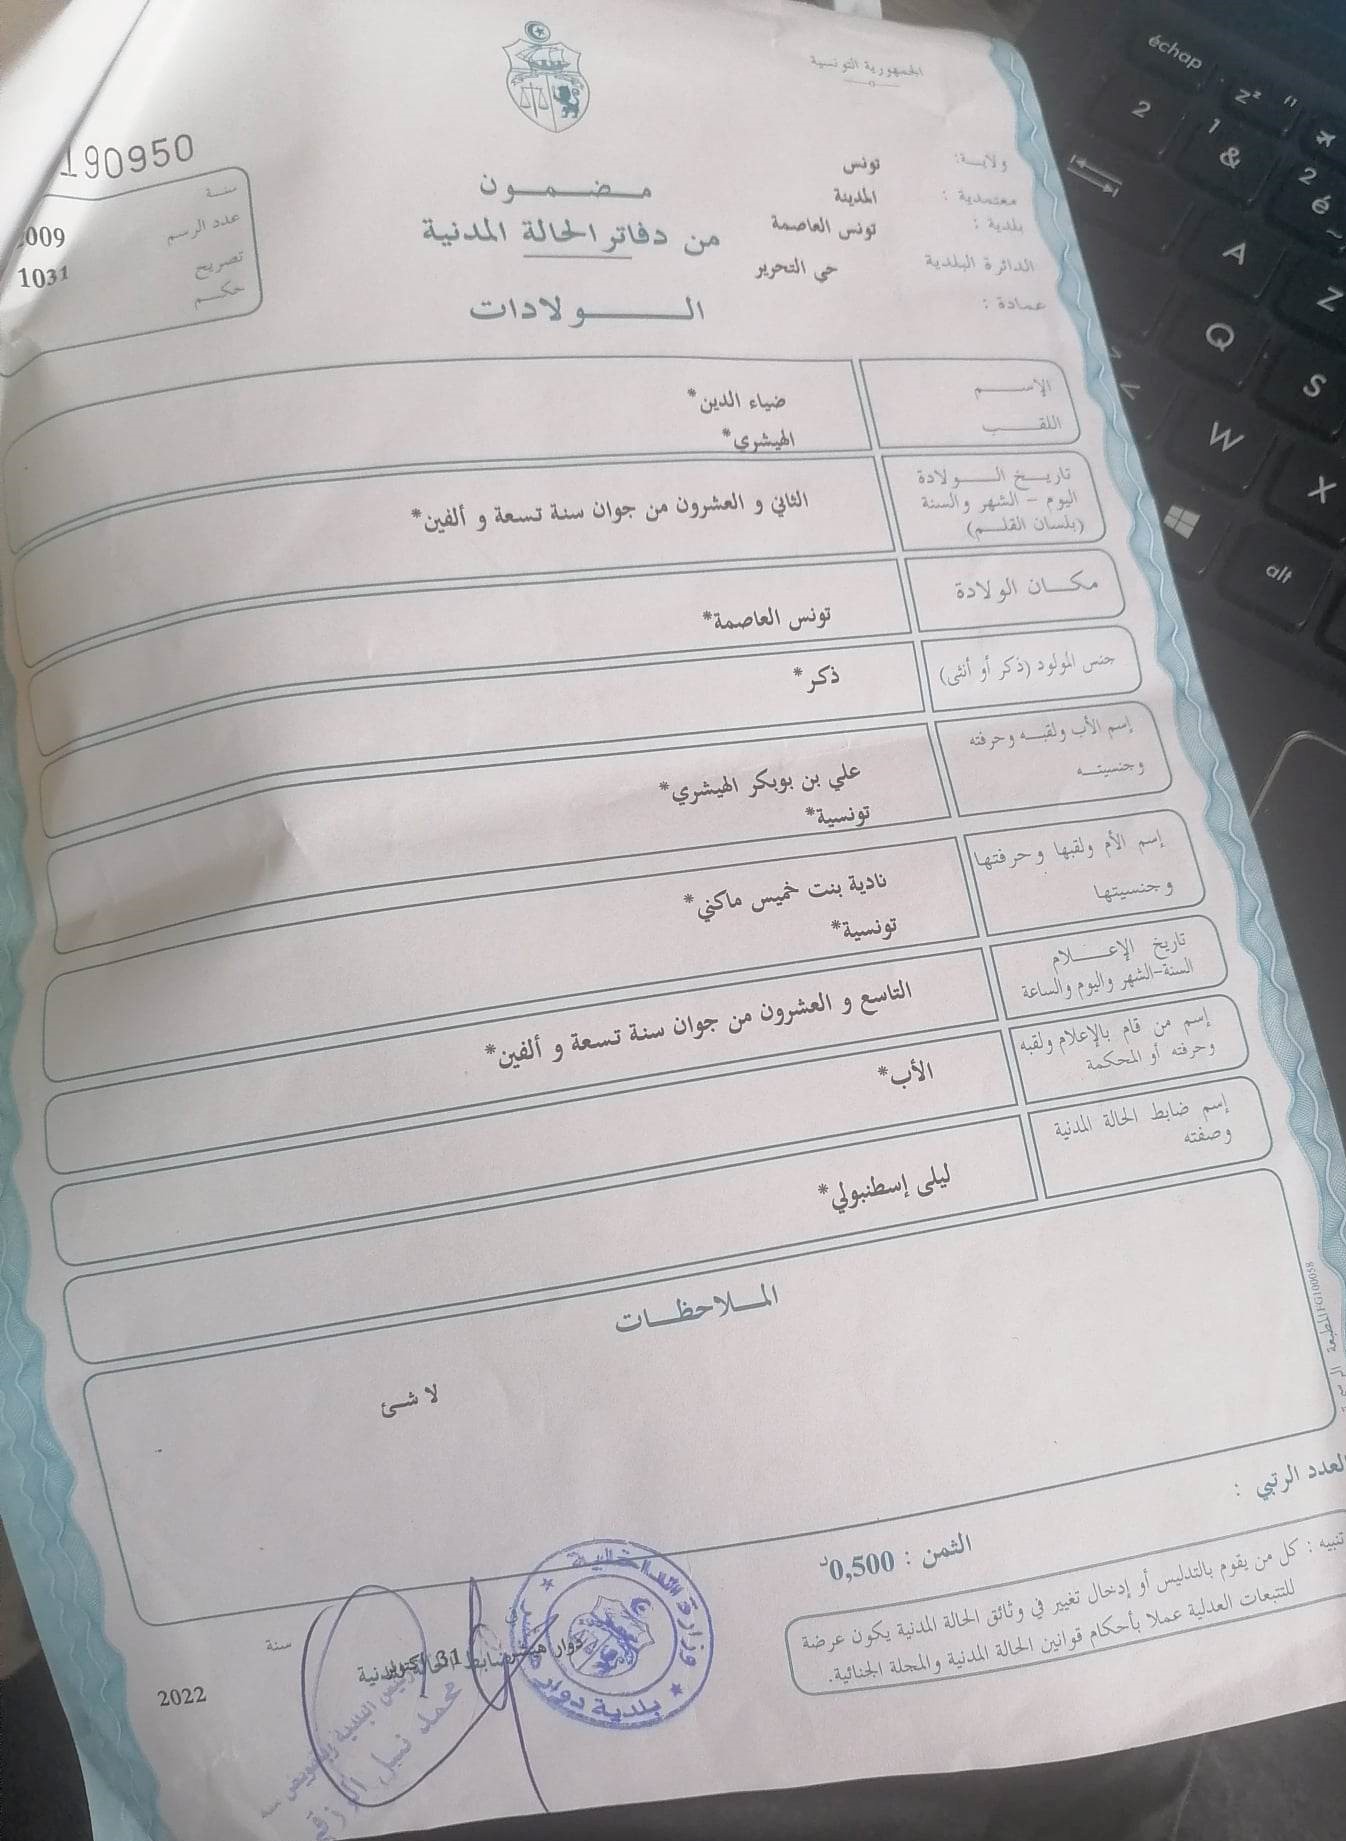 الجمهورية التونسية
190950
ولاية: تونس
معتمدية : المدينة
بلدية : تونس العاصمة
الدائرة البلدية حي التحرير
عمادة :
مضمون
من دفاتر الحالة المدنية
الولادات
سنة
009
عدد الرسم
1031
تصريح
حكم
الإسم
ضياء الدين*
اللقب
الهيشري*
تاريخ الولادة
اليوم - الشهر والسنة
(بلسان القلم)
الثاني و العشرون من جوان سنة تسعة و ألفين*
مكان الولادة
تونس العاصمة*
جنس المولود (ذكر أو أنثى)
ذكر*
إسم الأب ولقبه وحرفته
وجنسيته
علي بن بوبكر الهيشري*
تونسية*
إسم الأم ولقبها وحرفتها
وجنسيتها
نادية بنت خميس ماكني*
تونسية*
تاريخ الإعلام
السنة-الشهر واليوم والساعة
التاسع و العشرون من جوان سنة تسعة و ألفين*
إسم من قام بالإعلام ولقبه
وحرفته أو المحكمة
الأب*
إسم ضابط الحالة المدنية
وصفته
ليلى إسطنبولي*
الملاحظات
لا شئ
المطبعة FG100058
العدد الرتبي :
الثمن : 0,500د
تنبيه : كل من يقوم بالتدليس أو إدخال تغيير في وثائق الحالة المدنية يكون عرضة
للتتبعات العدلية عملا بأحكام قوانين الحالة المدنية والمجلة الجنائية.
دوار هيشر 31 أكتوبر
سنة
2022
ضابط الحالة المدنية
وزارة الداخلية
بلدية دوار هيشر
رئيس البلدية وبتفويض منه
محمد نبيل